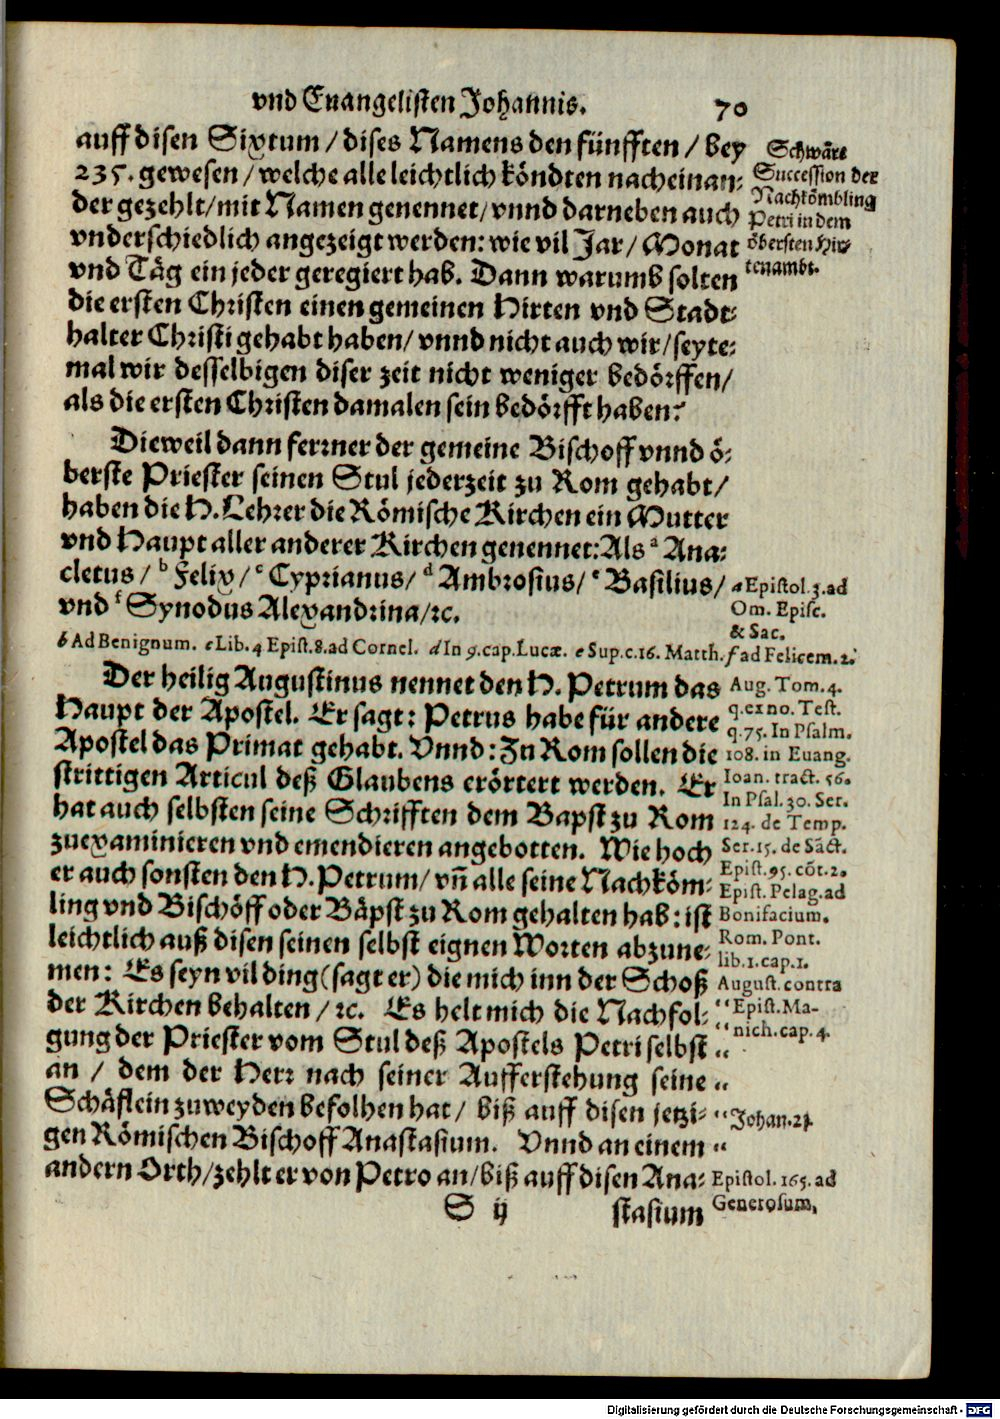 vnd Euangelisten Johannis. 70
auff disen Sixtum / dises Namens den fünfften / bey
235. gewesen / welche alle leichtlich köndten nacheinan⸗
der gezehlt / mit Namen genennet / vnnd darneben auch
vnderschiedlich angezeigt werden: wie vil Jar / Monat
vnd Täg ein jeder geregiert hab. Dann warumb solten
die ersten Christen einen gemeinen Hirten vnd Stadt⸗
halter Christi gehabt haben / vnnd nicht auch wir / seyte⸗
mal wir desselbigen diser zeit nicht weniger bedörffen /
als die ersten Christen damalen sein bedörfft haben?
Succession der
Nachkömbling
Petri in dem
öbersten Hir⸗
tenambt.
Dieweil dann ferrner der gemeine Bischoff vnnd ö⸗
berste Priester seinen Stul jederzeit zu Rom gehabt /
haben die H. Lehrer die Römische Kirchen ein Mutter
vnd Haupt aller anderer Kirchen genennet: Als a Ana⸗
cletus / b Felix / c Cyprianus / d Ambrosius / e Basilius /
vnd f Synodus Alexandrina / ꝛc.
a Epistol. 3. ad
Om. Episc.
& Sac.
b Ad Benignum. c Lib. 4 Epist. 8. ad Cornel. d In 9. cap. Lucæ. e Sup. c. 16. Matth. f ad Felicem. 2.
Der heilig Augustinus nennet den H. Petrum das
Haupt der Apostel. Er sagt: Petrus habe für andere
Apostel das Primat gehabt. Vnnd: Zu Rom sollen die
strittigen Articul deß Glaubens erörtert werden. Er
hat auch selbsten seine Schrifften dem Bapst zu Rom
zuexaminieren vnd emendieren angebotten. Wie hoch
er auch sonsten den H. Petrum / vñ alle seine Nachköm⸗
ling vnd Bischöff oder Bäpst zu Rom gehalten hab: ist
leichtlich auß disen seinen selbst eignen Worten abzune⸗
men: Es seyn vil ding (sagt er) die mich inn der Schoß
der Kirchen behalten / ꝛc. Es helt mich die Nachfol⸗
gung der Priester vom Stul deß Apostels Petri selbst
an / dem der Herr nach seiner Aufferstehung seine
Schäflein zuweyden befolhen hat / biß auff disen jetzi⸗
gen Römischen Bischoff Anastasium. Vnnd an einem
andern Orth / zehlt er von Petro an / biß auff disen Ana⸗
Aug. Tom. 4.
q. ex no. Test.
q. 75. In Psalm.
108. in Euang.
Ioan. tract. 56.
In Psal. 30. Ser.
124. de Temp.
Ser. 15. de Sāct.
Epist. 95. cōt. 2.
Epist. Pelag. ad
Bonifacium.
Rom. Pont.
lib. 1. cap. 1.
August. contra
“ Epist. Ma-
“ nich. cap. 4.
“
“ Johan. 21.
“
Epistol. 165. ad
Generosum,
S ij stasium
Digitalisierung gefördert durch die Deutsche Forschungsgemeinschaft - DFG